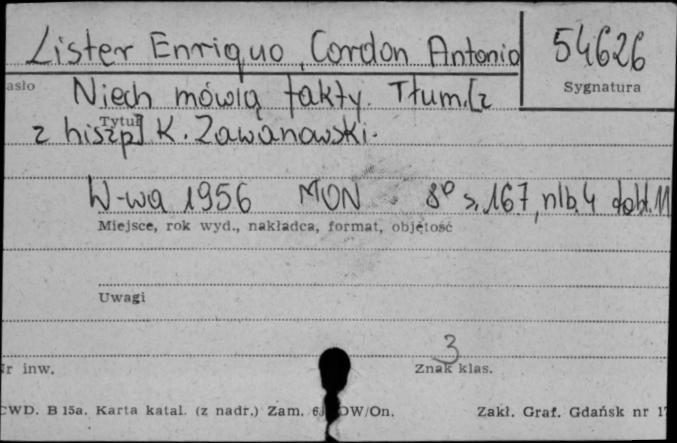 Lister Enriquo, Cordon Antonio 54626
Sygnatura
asło Niech mówią fakty. Tłum. [z
Tytuł
z hiszp] K. Zawanowski.
W-wa 1956 MON 8° s. 167, nlb. 4
Miejsce, rok wyd., nakładca, format, objętość
Uwagi
3
r inw. Znak klas.
CWD. B 15a. Karta katal. (z nadr.) Zam. OW/On. Zakł. Graf. Gdańsk nr